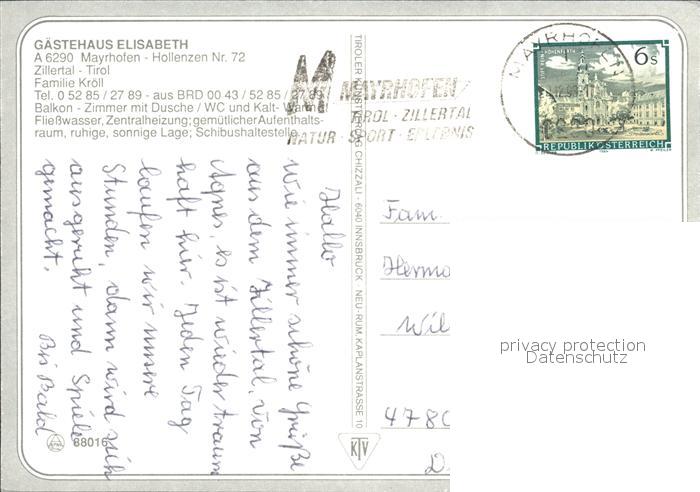 GÄSTEHAUS ELISABETH
A 6290 Mayrhofen - Hollenzen Nr. 72
Zillertal - Tirol
Familie Kröll
Tel. 0 52 85 / 27 89 - aus BRD 00 43 / 52 85 / 27 89
Balkon - Zimmer mit Dusche / WC und Kalt- Warm-
Fließwasser, Zentralheizung; gemütlicher Aufenthalts-
raum, ruhige, sonnige Lage; Schibushaltestelle.
Hallo
Wie immer schöne Grüße
aus dem Zillertal, von
Agnes, es ist wieder traum
haft hier. Jeden Tag
laufen wir unsere
Stunden, dann wird sich
ausgeruht und Spiele
gemacht.
Bis Bald
88016
TIROLER KUNSTVERLAG CHIZZALI · 6040 INNSBRUCK · NEU-RUM, KAPLANSTRASSE 10
KTV
M MAYRHOFEN
TIROL · ZILLERTAL
NATUR · SPORT · ERLEBNIS
MAYRHOFEN
6 S
STIFT REIN-HOHENFURTH
REPUBLIK ÖSTERREICH
Fam.
Hermo
Wil
478
D
privacy protection
Datenschutz